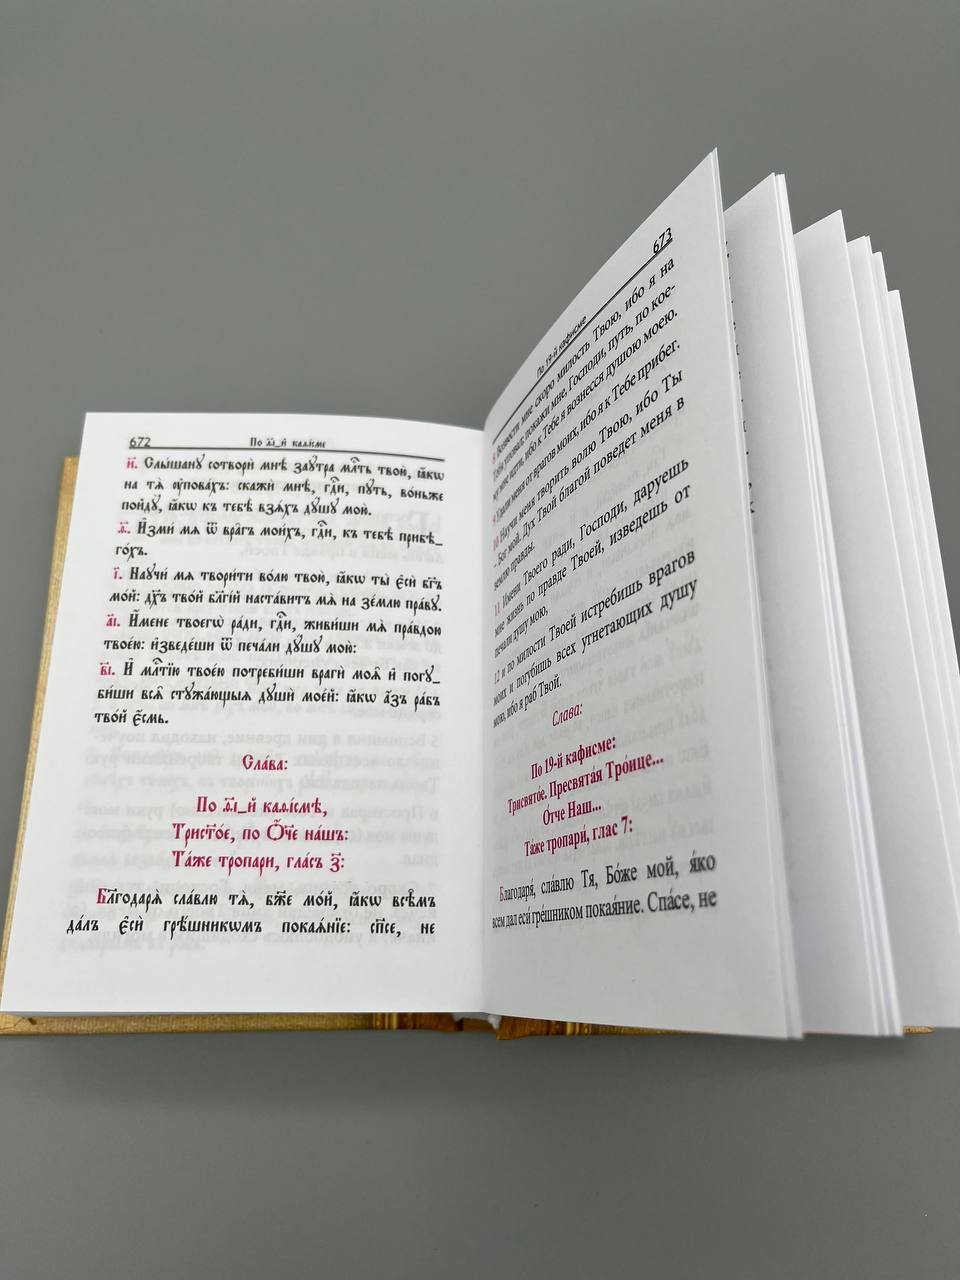 672
По ѳ҃і_й каѳі́смѣ
и҃. Слы́шану сотвори́ мнѣ̀ заꙋ́тра млⷭ҇ть твою̀, ꙗ҆́кѡ
на тѧ̀ ᲂу҆пова́хъ: скажи́ мнѣ, гдⷭ҇и, пꙋ́ть, во́ньже
пойдꙋ̀, ꙗ҆́кѡ къ тебѣ̀ взѧ́хъ дꙋ́шꙋ мою̀.
ѳ҃. И҆зми́ мѧ ѿ вра̑гъ мои́хъ, гдⷭ҇и, къ тебѣ̀ прибѣ_
го́хъ.
і҃. Наꙋчи́ мѧ твори́ти во́лю твою̀, ꙗ҆́кѡ ты̀ є҆сѝ бг҃ъ
мо́й: дх҃ъ тво́й бл҃гі́й наста́витъ мѧ̀ на зе́млю пра́вꙋ.
а҃і. И҆́мене твоегѡ̀ ра́ди, гдⷭ҇и, живи́ши мѧ̀ пра́вдою
твое́ю: и҆зведе́ши ѿ печа́ли дꙋ́шꙋ мою̀:
в҃і. И҆ млⷭ҇тїю твое́ю потреби́ши врагѝ моѧ̑ и҆ погꙋ_
би́ши всѧ̑ стꙋжа́ющыѧ дꙋшѝ мое́й: ꙗ҆́кѡ а҆́зъ ра́бъ
тво́й є҆́смь.
Сла́ва:
По ѳ҃і_й каѳі́смѣ,
Трист҃о́е, по Ѻ҆́ч҃е на́шъ:
Та́же тропари, гла́съ з҃:
Бл҃годарѧ̀ сла́влю тѧ̀, бж҃е мо́й, ꙗ҆́кѡ всѣ̑мъ
да́лъ є҆сѝ грѣ̑шникѡмъ покаѧ́нїе: сп҃се, не
673
По 19-й кафисме
8 Возвести мне скоро милость Твою, ибо я на
Тебя уповаю; покажи мне, Господи, путь, по кое-
му мне идти, ибо к Тебе я вознесся душою моею.
9 Удали меня от врагов моих, ибо я к Тебе прибег.
10 Научи меня творить волю Твою, ибо Ты
– Бог мой. Дух Твой благой поведет меня в
землю правды.
11 Имени Твоего ради, Господи, даруешь
мне жизнь по правде Твоей, изведешь от
печали душу мою,
12 и по милости Твоей истребишь врагов
моих и погубишь всех угнетающих душу
мою, ибо я раб Твой.
Слава:
По 19-й кафисме:
Трисвято́е. Пресвята́я Тро́ице...
О́тче Наш...
Та́же тропари́, глас 7:
Благодаря́, сла́влю Тя, Бо́же мой, я́ко
всем дал еси́ гре́шником покая́ние. Спа́се, не